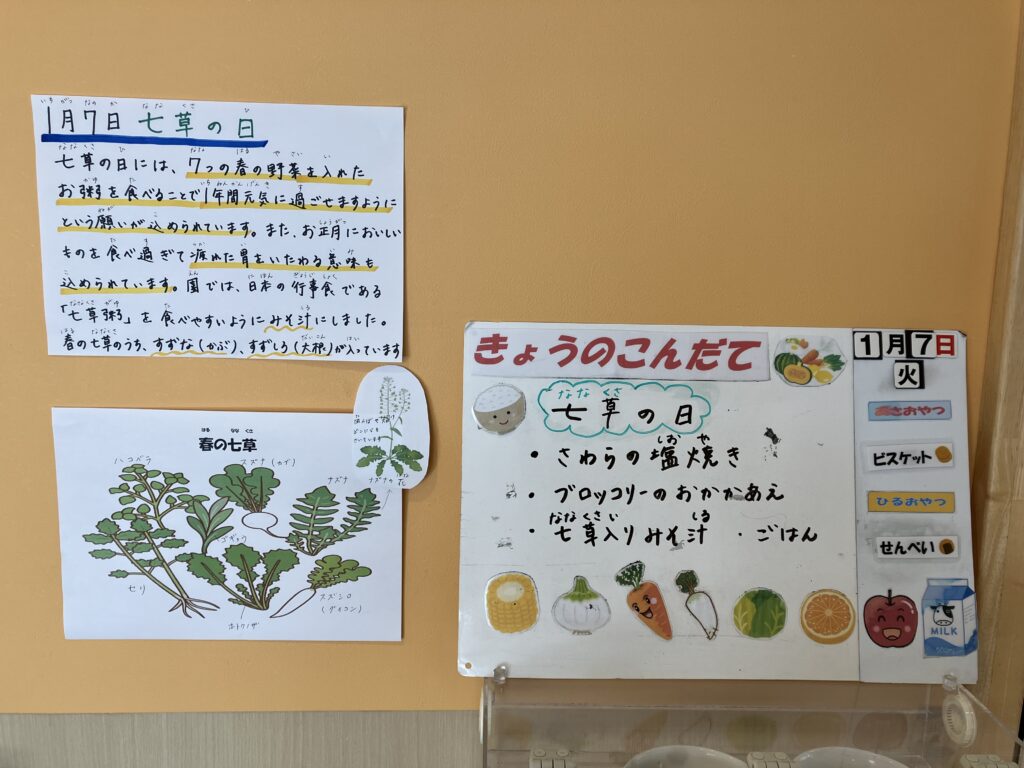 1月7日 七草の日
七草の日には、7つの春の野菜を入れた
お粥を食べることで1年間元気に過ごせますように
という願いが込められています。また、お正月においしい
ものを食べ過ぎて疲れた胃をいたわる意味も
込められています。園では、日本の行事食である
「七草粥」を食べやすいようにみそ汁にしました。
春の七草のうち、すずな(かぶ)、すずしろ(大根)が入っています
春の七草
ハコベラ
スズナ(カブ)
ナズナ
ゴギョウ
セリ
スズシロ
(ダイコン)
ホトケノザ
ナズナの花
きょうのこんだて
七草の日
・さわらの塩焼き
・ブロッコリーのおかかあえ
・七草入りみそ汁 ・ごはん
1月7日
火
あさおやつ
ビスケット
ひるおやつ
せんべい
MILK